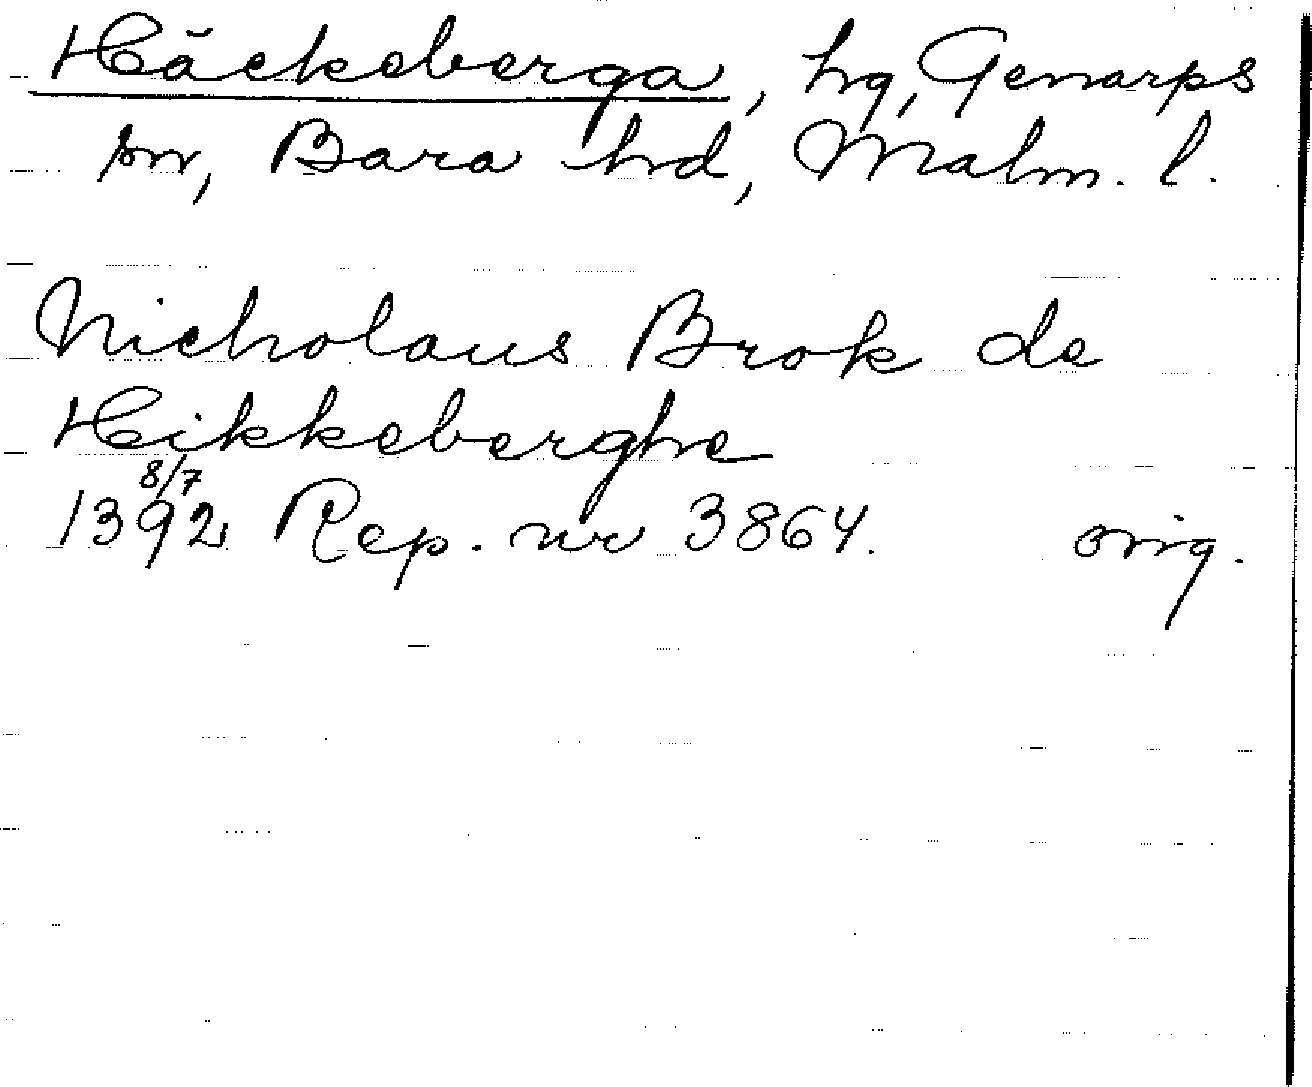 Häckeberga, hg, Genarps
sn, Bara hd, Malm. l.
Nicholaus Brok de
Hikkeberghe
8/7
1392 Rep. nr 3864. orig.